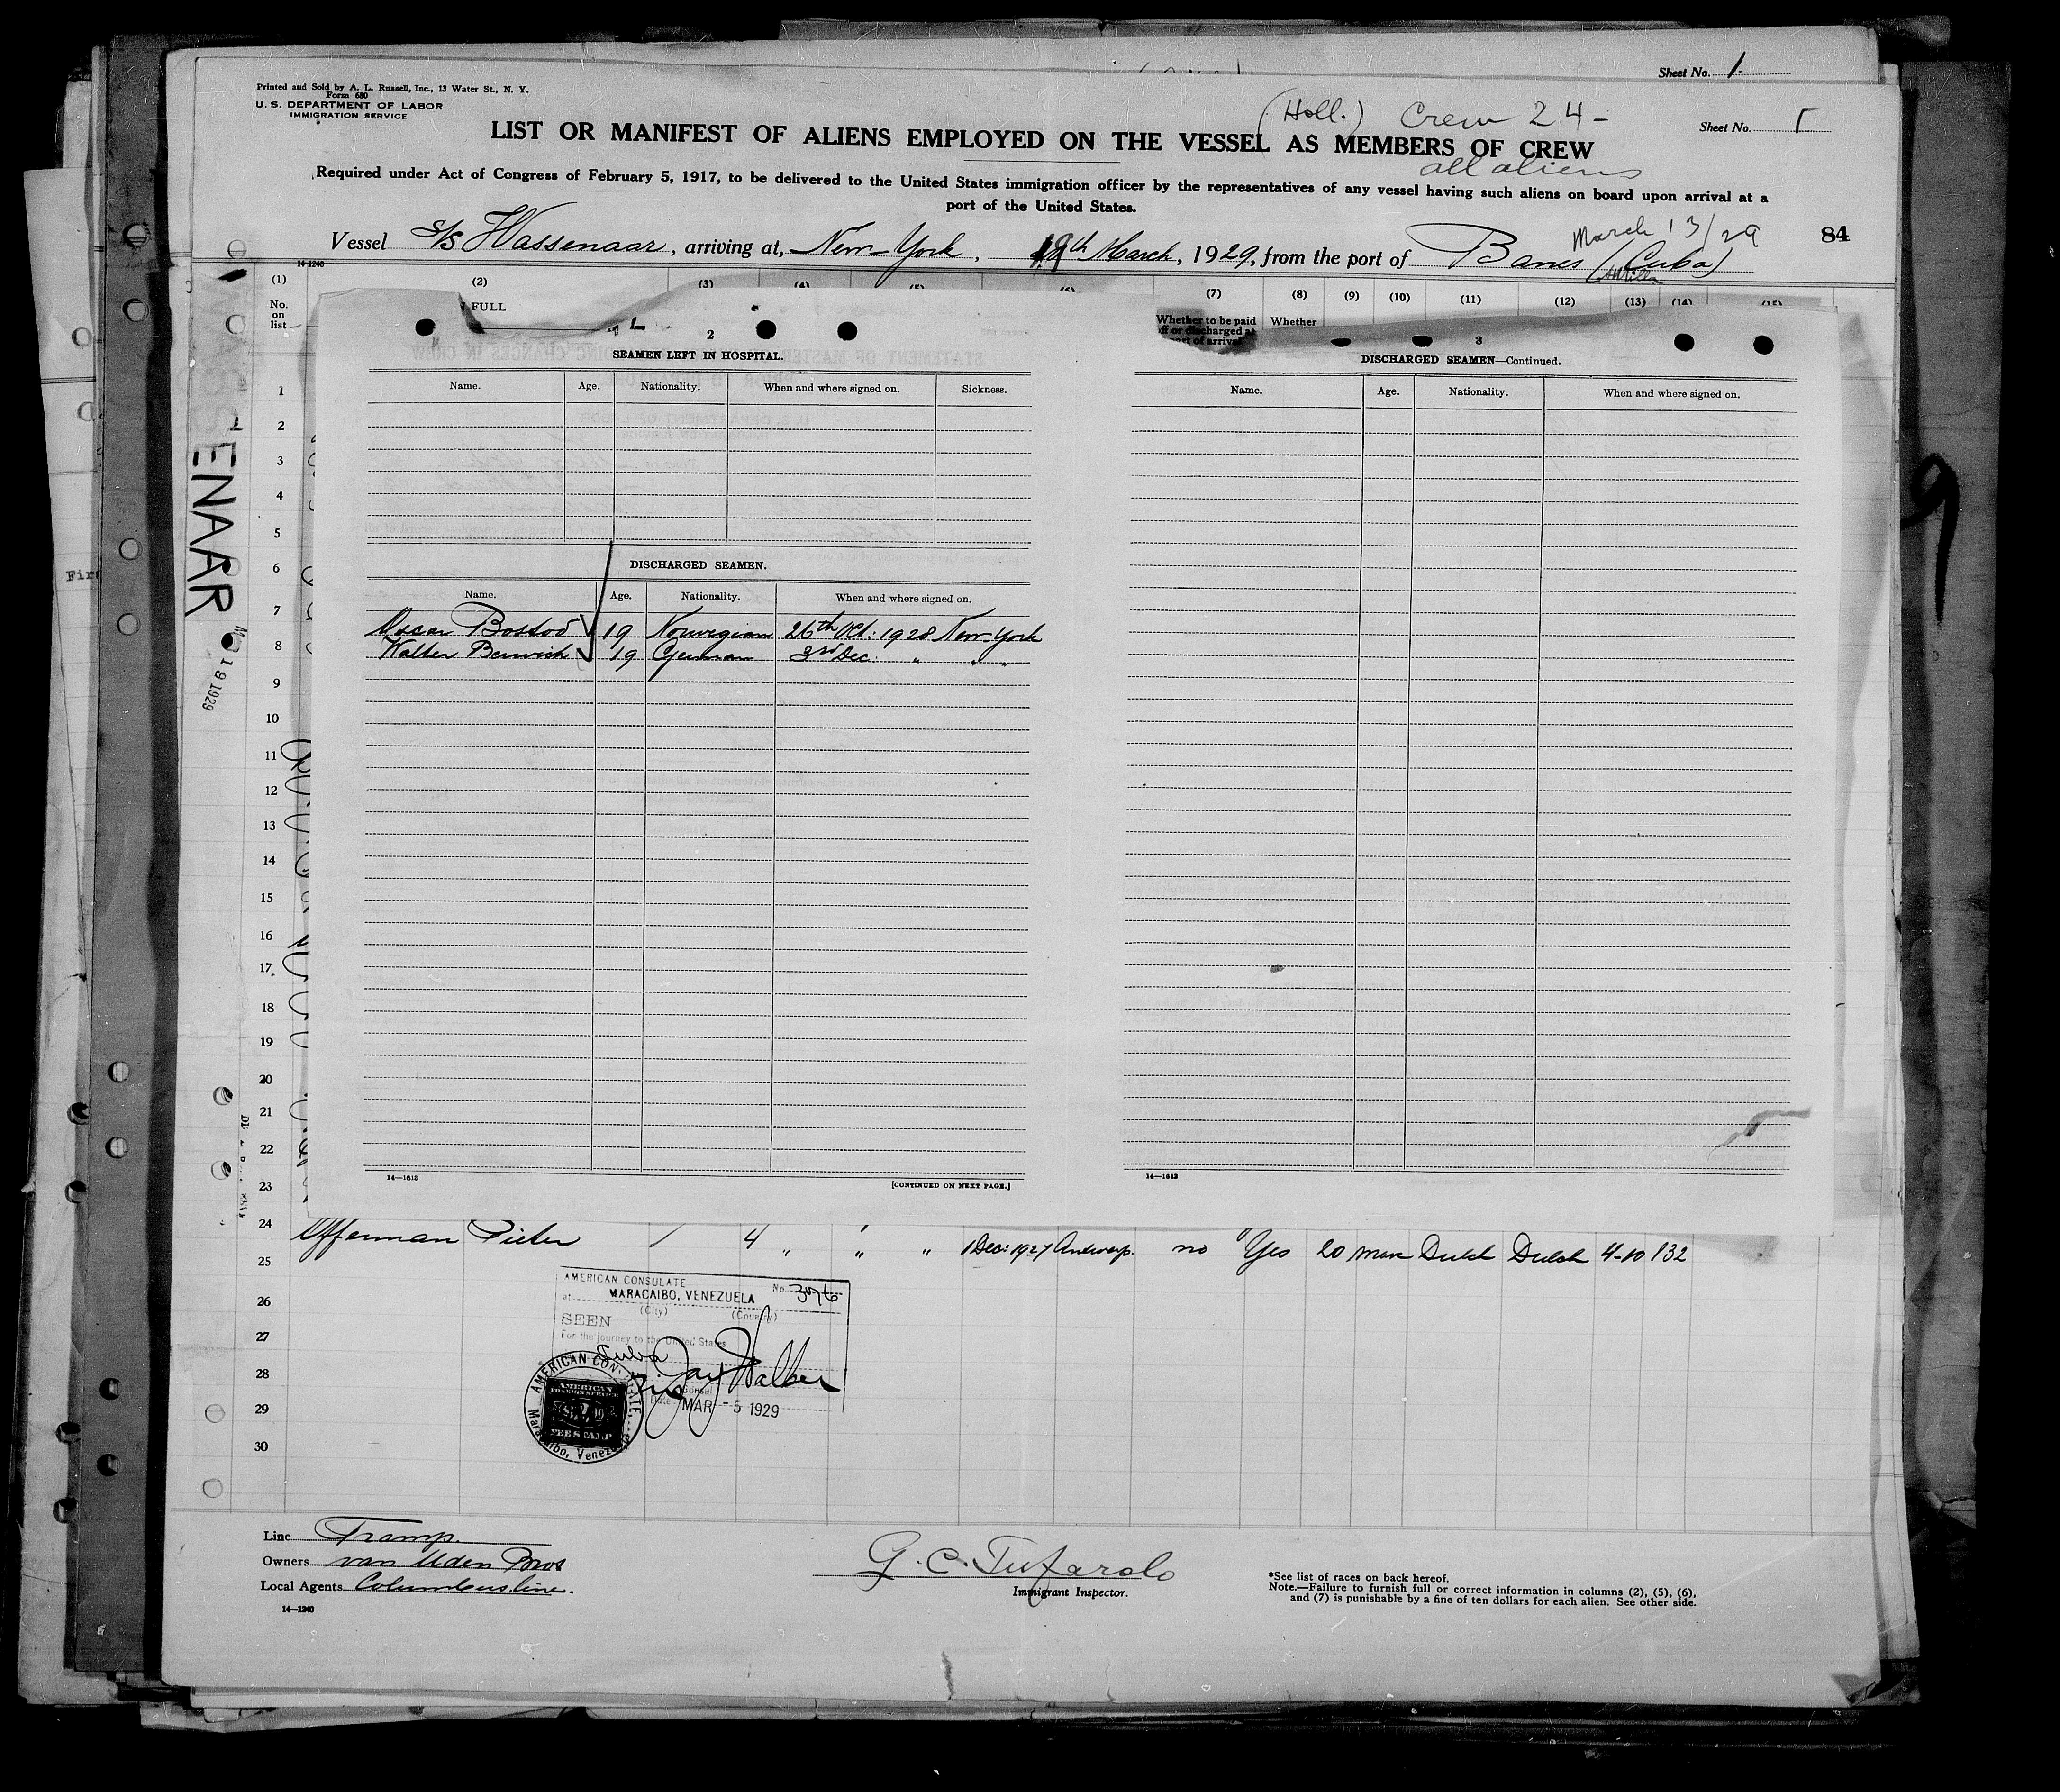 Sheet No. 1.
Printed and Sold by A. L. Russell, Inc., 13 Water St., N. Y.
Form 680
U. S. DEPARTMENT OF LABOR
IMMIGRATION SERVICE
(Holl.) Crew 24 -
Sheet No. 1
LIST OR MANIFEST OF ALIENS EMPLOYED ON THE VESSEL AS MEMBERS OF CREW
all aliens
Required under Act of Congress of February 5, 1917, to be delivered to the United States immigration officer by the representatives of any vessel having such aliens on board upon arrival at a
port of the United States.
March 13/29
84
Vessel S/S Wassenaar, arriving at, New-York, 19th March, 1929, from the port of Banes (Cuba)
Antilla
14-1240
(1) (2) (3) (4) (5) (6) (7) (8) (9) (10) (11) (12) (13) (14) (15)
No. on list
FULL
Whether to be paid off or discharged at port of arrival
Whether
2
SEAMEN LEFT IN HOSPITAL.
Name. Age. Nationality. When and where signed on. Sickness.
DISCHARGED SEAMEN.
Name. Age. Nationality. When and where signed on.
Oscar 19 Norwegian 26th Oct: 1928 New-York
Walter 19 German 3rd Dec. " " "
14—1613
[CONTINUED ON NEXT PAGE.]
3
DISCHARGED SEAMEN—Continued.
Name. Age. Nationality. When and where signed on.
14—1613
WASSENAAR
19 1929
Fir
9
1
2
3
4
5
6
7
8
9
10
11
12
13
14
15
16
17
18
19
20
21
22
23
24
Offerman Pieter / 4 " " " 1 Dec: 1927 Antwerp. no Yes 20 man Dutch Dutch 4-10 132
25
26
27
28
29
30
AMERICAN CONSULATE
No. 376
at MARACAIBO, VENEZUELA
(City) (Country)
SEEN
For the journey to the United States
Cuba
Jay Walker
Consul
Date MAR - 5 1929
AMERICAN CONSULATE, Maracaibo, Venezuela
AMERICAN
FOREIGN SERVICE
FEE STAMP
Line Tramp.
Owners van Uden Bros
Local Agents Columbus line.
14—1240
G. C. Tufarolo
Immigrant Inspector.
*See list of races on back hereof.
Note.—Failure to furnish full or correct information in columns (2), (5), (6),
and (7) is punishable by a fine of ten dollars for each alien. See other side.